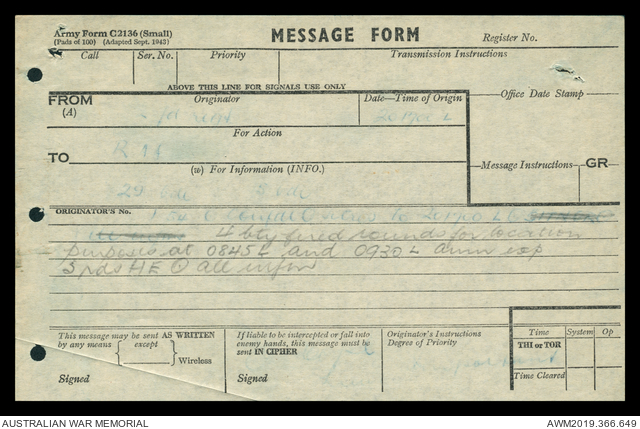 Army Form C2136 (Small)
(Pads of 100) (Adapted Sept. 1943)
MESSAGE FORM
Register No.
Call
Ser. No.
Priority
Transmission Instructions
ABOVE THIS LINE FOR SIGNALS USE ONLY
FROM
(A)
Originator
Date—Time of Origin
Office Date Stamp
For Action
TO
(W) For Information (INFO.)
Message Instructions
GR
ORIGINATOR'S No.
to
4 bty fired rounds for location
purposes at 0845L and 0930L amn exp
3 rds HE all infm
This message may be sent AS WRITTEN
by any means
except
Wireless
Signed
If liable to be intercepted or fall into
enemy hands, this message must be
sent IN CIPHER
Signed
Originator's Instructions
Degree of Priority
Time
System
Op
THI or TOR
Time Cleared
AUSTRALIAN WAR MEMORIAL
AWM2019.366.649